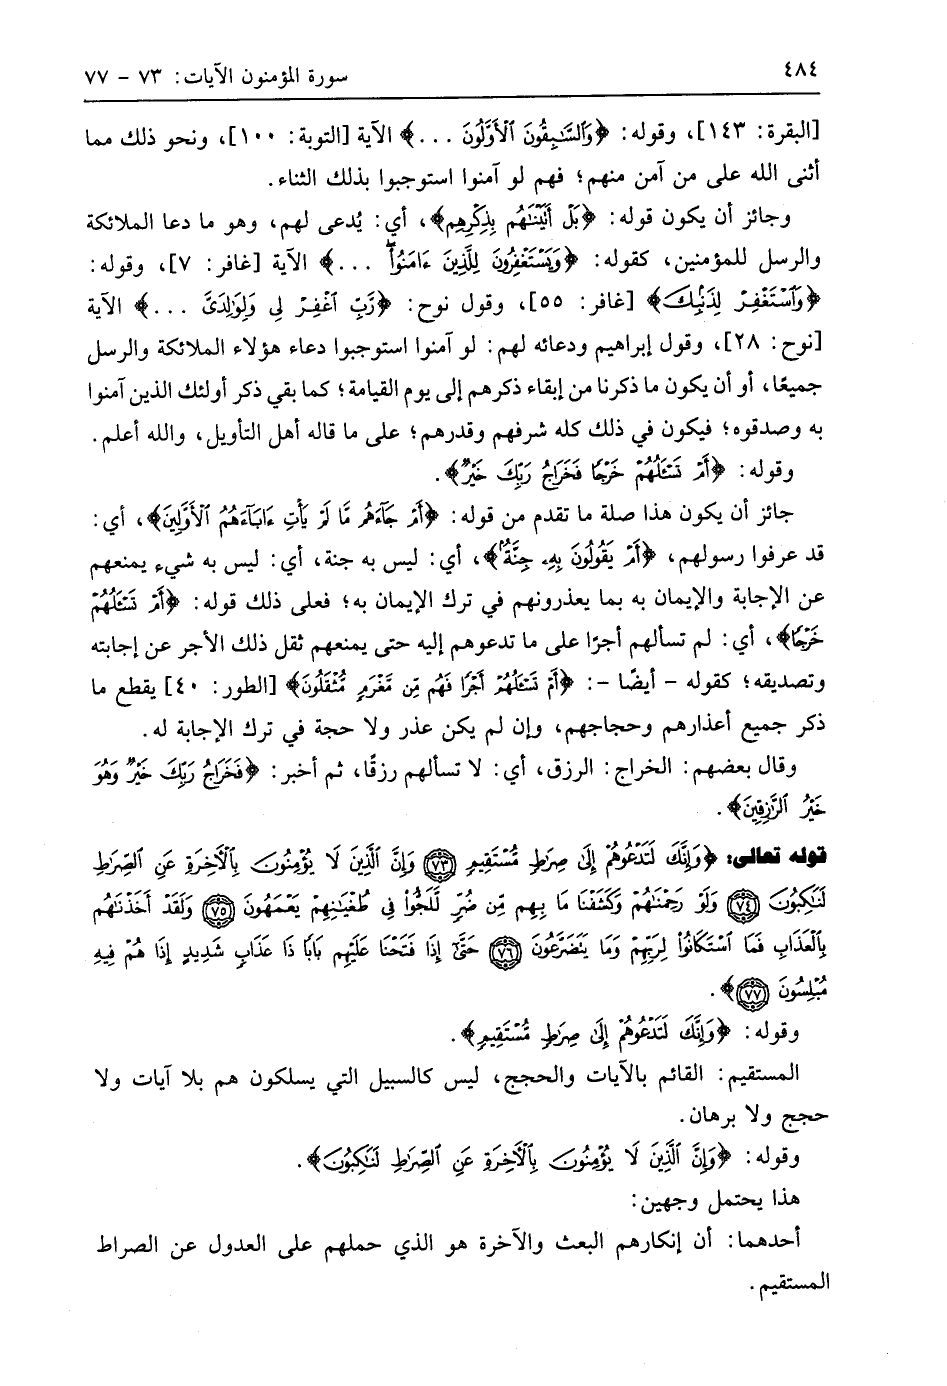 ٤٨٤
سورة المؤمنون الآيات: ٧٣ - ٧٧
[البقرة: ١٤٣]، وقوله: ﴿وَٱلسَّٰبِقُونَ ٱلْأَوَّلُونَ ...﴾ الآية [التوبة: ١٠٠]، ونحو ذلك مما
أثنى الله على من آمن منهم؛ فهم لو آمنوا استوجبوا بذلك الثناء.
وجائز أن يكون قوله: ﴿بَلْ أَتَيْنَٰهُم بِذِكْرِهِمْ﴾، أي: يُدعى لهم، وهو ما دعا الملائكة
والرسل للمؤمنين، كقوله: ﴿وَيَسْتَغْفِرُونَ لِلَّذِينَ ءَامَنُوا۟ ...﴾ الآية [غافر: ٧]، وقوله:
﴿وَٱسْتَغْفِرْ لِذَنۢبِكَ﴾ [غافر: ٥٥]، وقول نوح: ﴿رَّبِّ ٱغْفِرْ لِى وَلِوَٰلِدَىَّ ...﴾ الآية
[نوح: ٢٨]، وقول إبراهيم ودعائه لهم: لو آمنوا استوجبوا دعاء هؤلاء الملائكة والرسل
جميعًا، أو أن يكون ما ذكرنا من إبقاء ذكرهم إلى يوم القيامة؛ كما بقي ذكر أولئك الذين آمنوا
به وصدقوه؛ فيكون في ذلك كله شرفهم وقدرهم؛ على ما قاله أهل التأويل، والله أعلم.
وقوله: ﴿أَمْ تَسْـَٔلُهُمْ خَرْجًا فَخَرَاجُ رَبِّكَ خَيْرٌ﴾.
جائز أن يكون هذا صلة ما تقدم من قوله: ﴿أَمْ جَآءَهُم مَّا لَمْ يَأْتِ ءَابَآءَهُمُ ٱلْأَوَّلِينَ﴾، أي:
قد عرفوا رسولهم، ﴿أَمْ يَقُولُونَ بِهِۦ جِنَّةٌۢ﴾، أي: ليس به جنة، أي: ليس به شيء يمنعهم
عن الإجابة والإيمان به بما يعذرونهم في ترك الإيمان به؛ فعلى ذلك قوله: ﴿أَمْ تَسْـَٔلُهُمْ
خَرْجًا﴾، أي: لم تسألهم أجرًا على ما تدعوهم إليه حتى يمنعهم ثقل ذلك الأجر عن إجابته
وتصديقه؛ كقوله - أيضًا -: ﴿أَمْ تَسْـَٔلُهُمْ أَجْرًا فَهُم مِّن مَّغْرَمٍ مُّثْقَلُونَ﴾ [الطور: ٤٠] يقطع ما
ذكر جميع أعذارهم وحجاجهم، وإن لم يكن عذر ولا حجة في ترك الإجابة له.
وقال بعضهم: الخراج: الرزق، أي: لا تسألهم رزقًا، ثم أخبر: ﴿فَخَرَاجُ رَبِّكَ خَيْرٌ وَهُوَ
خَيْرُ ٱلرَّٰزِقِينَ﴾.
قوله تعالى: ﴿وَإِنَّكَ لَتَدْعُوهُمْ إِلَىٰ صِرَٰطٍ مُّسْتَقِيمٍ ٧٣ وَإِنَّ ٱلَّذِينَ لَا يُؤْمِنُونَ بِٱلْءَاخِرَةِ عَنِ ٱلصِّرَٰطِ
لَنَٰكِبُونَ ٧٤ وَلَوْ رَحِمْنَٰهُمْ وَكَشَفْنَا مَا بِهِم مِّن ضُرٍّ لَّلَجُّوا۟ فِى طُغْيَٰنِهِمْ يَعْمَهُونَ ٧٥ وَلَقَدْ أَخَذْنَٰهُم
بِٱلْعَذَابِ فَمَا ٱسْتَكَانُوا۟ لِرَبِّهِمْ وَمَا يَتَضَرَّعُونَ ٧٦ حَتَّىٰٓ إِذَا فَتَحْنَا عَلَيْهِم بَابًا ذَا عَذَابٍ شَدِيدٍ إِذَا هُمْ فِيهِ
مُبْلِسُونَ ٧٧﴾.
وقوله: ﴿وَإِنَّكَ لَتَدْعُوهُمْ إِلَىٰ صِرَٰطٍ مُّسْتَقِيمٍ﴾.
المستقيم: القائم بالآيات والحجج، ليس كالسبيل التي يسلكون هم بلا آيات ولا
حجج ولا برهان.
وقوله: ﴿وَإِنَّ ٱلَّذِينَ لَا يُؤْمِنُونَ بِٱلْءَاخِرَةِ عَنِ ٱلصِّرَٰطِ لَنَٰكِبُونَ﴾.
هذا يحتمل وجهين:
أحدهما: أن إنكارهم البعث والآخرة هو الذي حملهم على العدول عن الصراط
المستقيم.